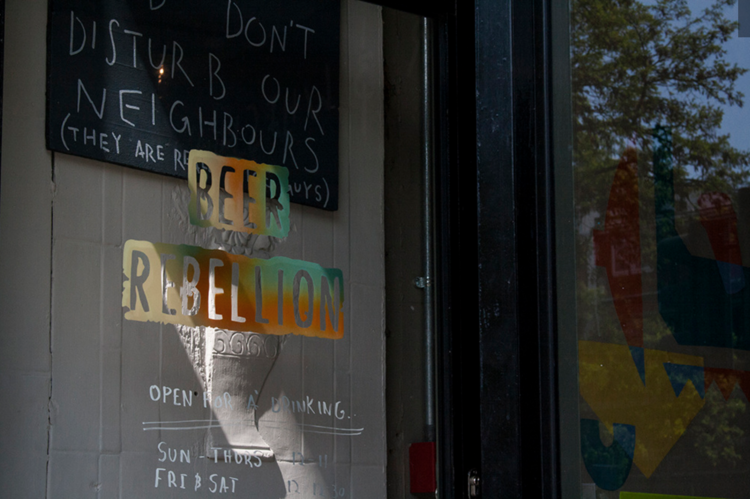 DON'T
DISTURB OUR
NEIGHBOURS
(THEY ARE GUYS)
BEER
REBELLION
OPEN FOR A DRINKING..
SUN - THURS 12 - 11
FRI & SAT